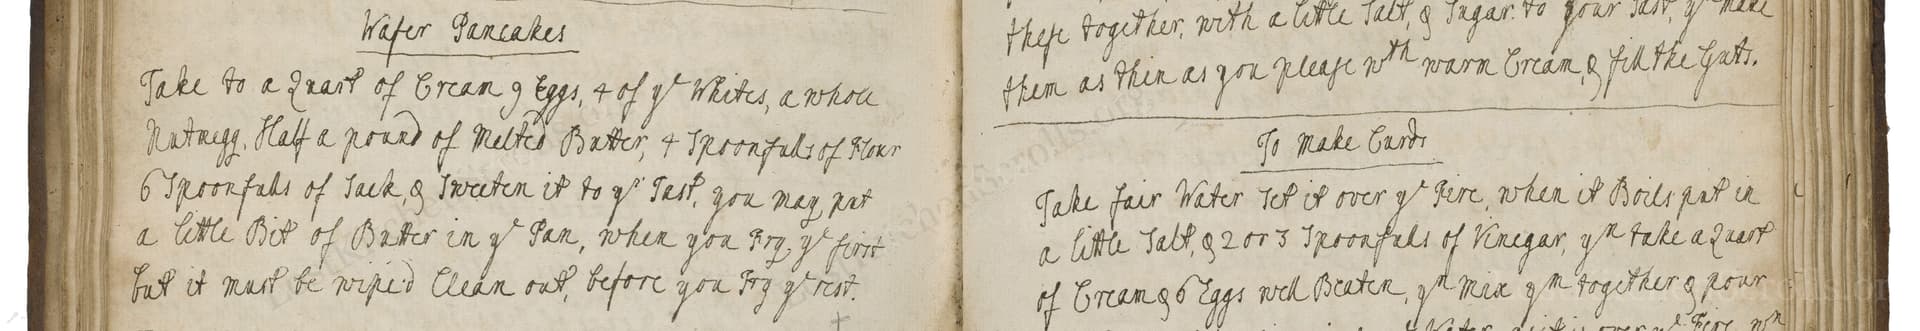 Wafer Pancakes
Take to a Quart of Cream 9 Eggs, 4 of yᵉ Whites, a whole
Nutmegg. Half a pound of Melted Butter, 4 Spoonfulls of Flour
6 Spoonfulls of Sack, & Sweeten it to yʳ Tast, you may put
a little Bit of Butter in yᵉ Pan, when you Fry yᵉ first
but it must be wiped Clean out, before you Fry yᵉ rest.
these together, with a little Salt, & Sugar to your Tast, yⁿ make
them as thin as you please wᵗʰ warm Cream, & fill the Guts.
To Make Curds
Take fair Water Set it over yᵉ Fire, when it Boils put in
a little Salt, & 2 or 3 Spoonfulls of Vinegar, yⁿ take a Quart
of Cream & 6 Eggs well Beaten, yⁿ mix yᵐ together & pour